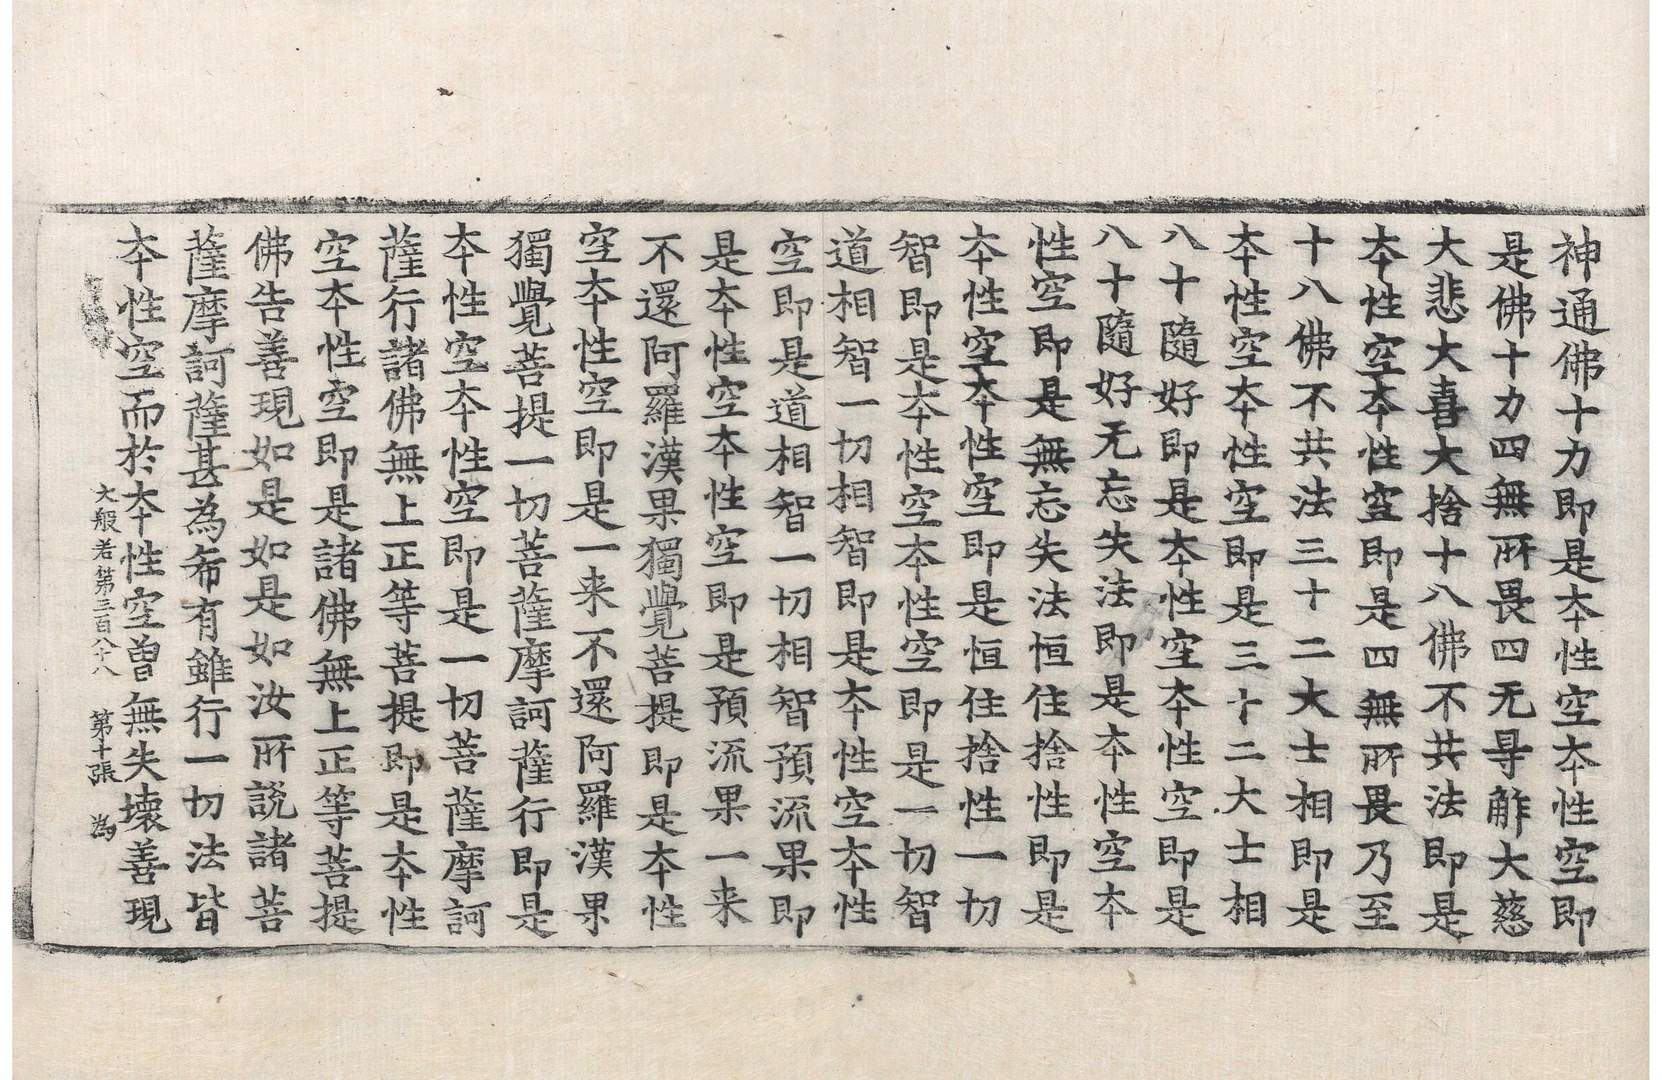 神通佛十力即是夲性空夲性空即
是佛十力四無所畏四无㝵解大慈
大悲大喜大捨十八佛不共法即是
夲性空夲性空即是四無所畏乃至
十八佛不共法三十二大士相即是
夲性空夲性空即是三十二大士相
八十隨好即是夲性空夲性空即是
八十隨好无忘失法即是夲性空夲
性空即是無忘失法恒住捨性即是
夲性空夲性空即是恒住捨性一切
智即是夲性空夲性空即是一切智
道相智一切相智即是夲性空夲性
空即是道相智一切相智預流果即
是夲性空夲性空即是預流果一来
不還阿羅漢果獨覺菩提即是夲性
空夲性空即是一来不還阿羅漢果
獨覺菩提一切菩薩摩訶薩行即是
夲性空夲性空即是一切菩薩摩訶
薩行諸佛無上正等菩提即是夲性
空夲性空即是諸佛無上正等菩提
佛告善現如是如是如汝所說諸菩
薩摩訶薩甚為希有雖行一切法皆
夲性空而於夲性空曾無失壞善現
大般若第三百八十八　第十張　為